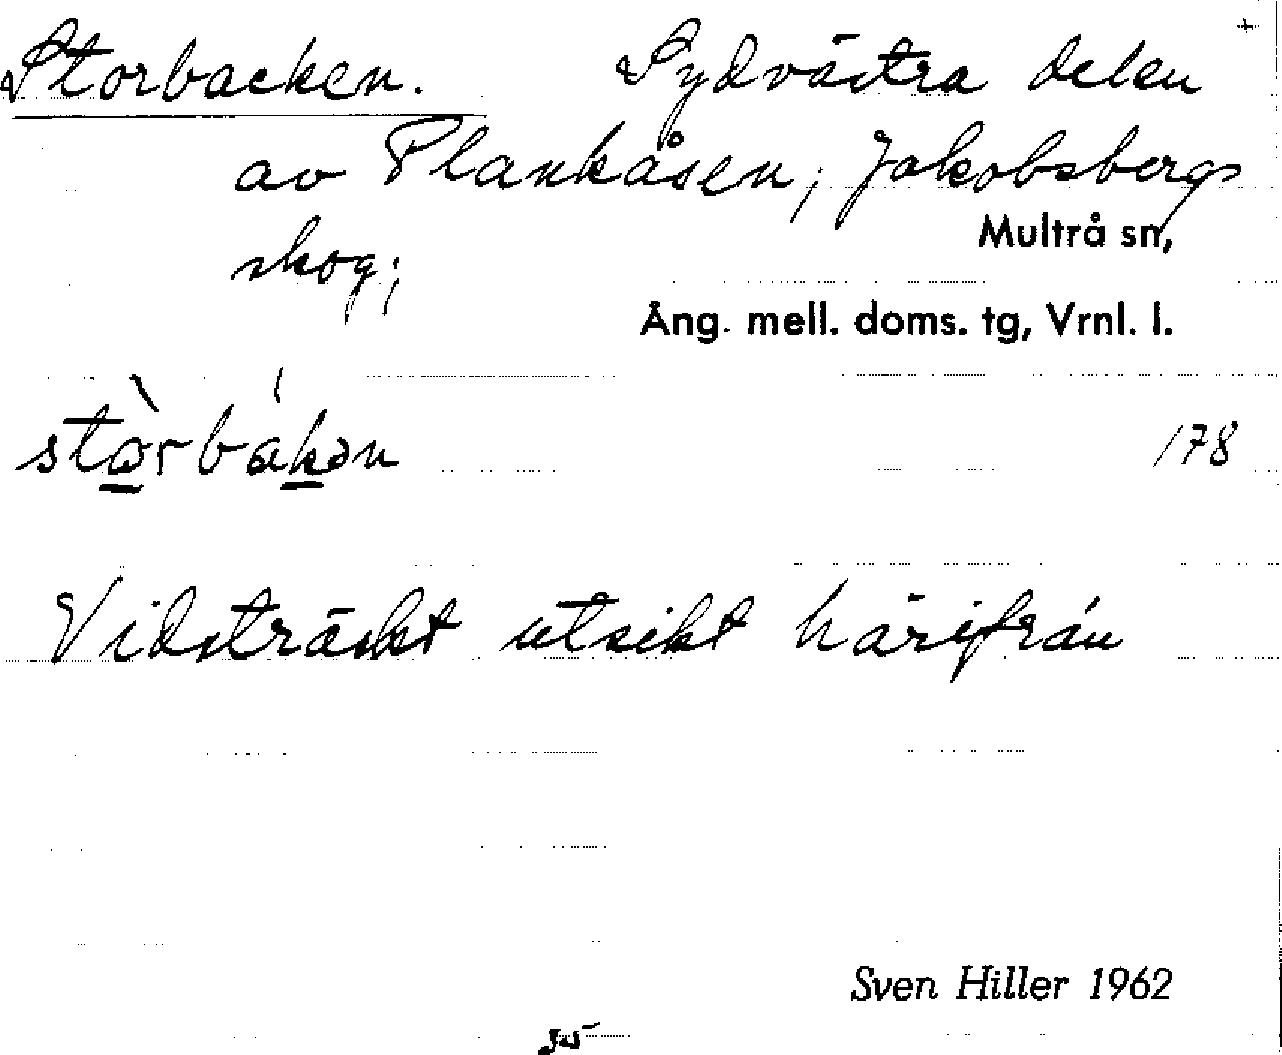 Storbacken. Sydvästra delen +
av Plankåsen, Jakobsbergs
skog;
Multrå sn,
Ång. mell. doms. tg, Vrnl. l.
stòrbákən 178
Vidsträckt utsikt härifrån
Sven Hiller 1962